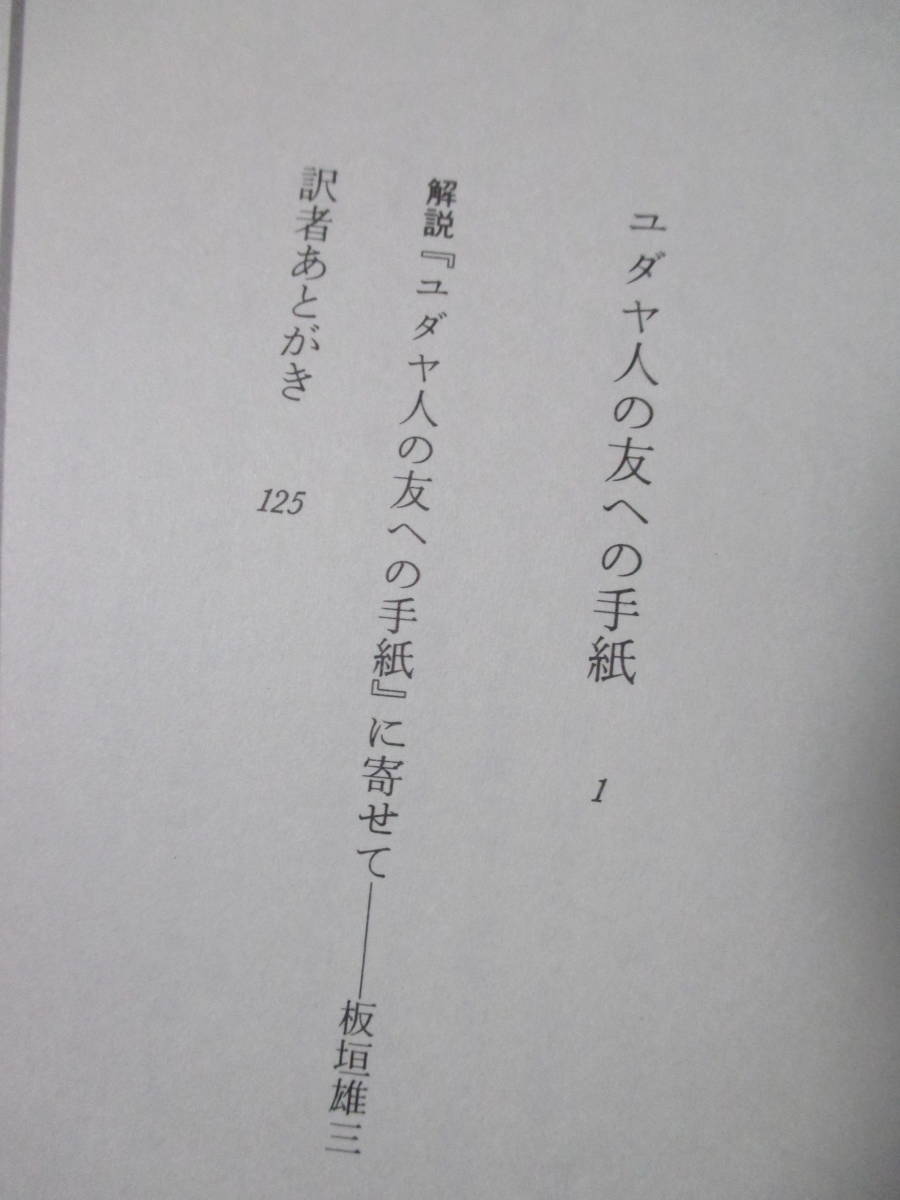 ユダヤ人の友への手紙 1
解説『ユダヤ人の友への手紙』に寄せて――板垣雄三
訳者あとがき 125